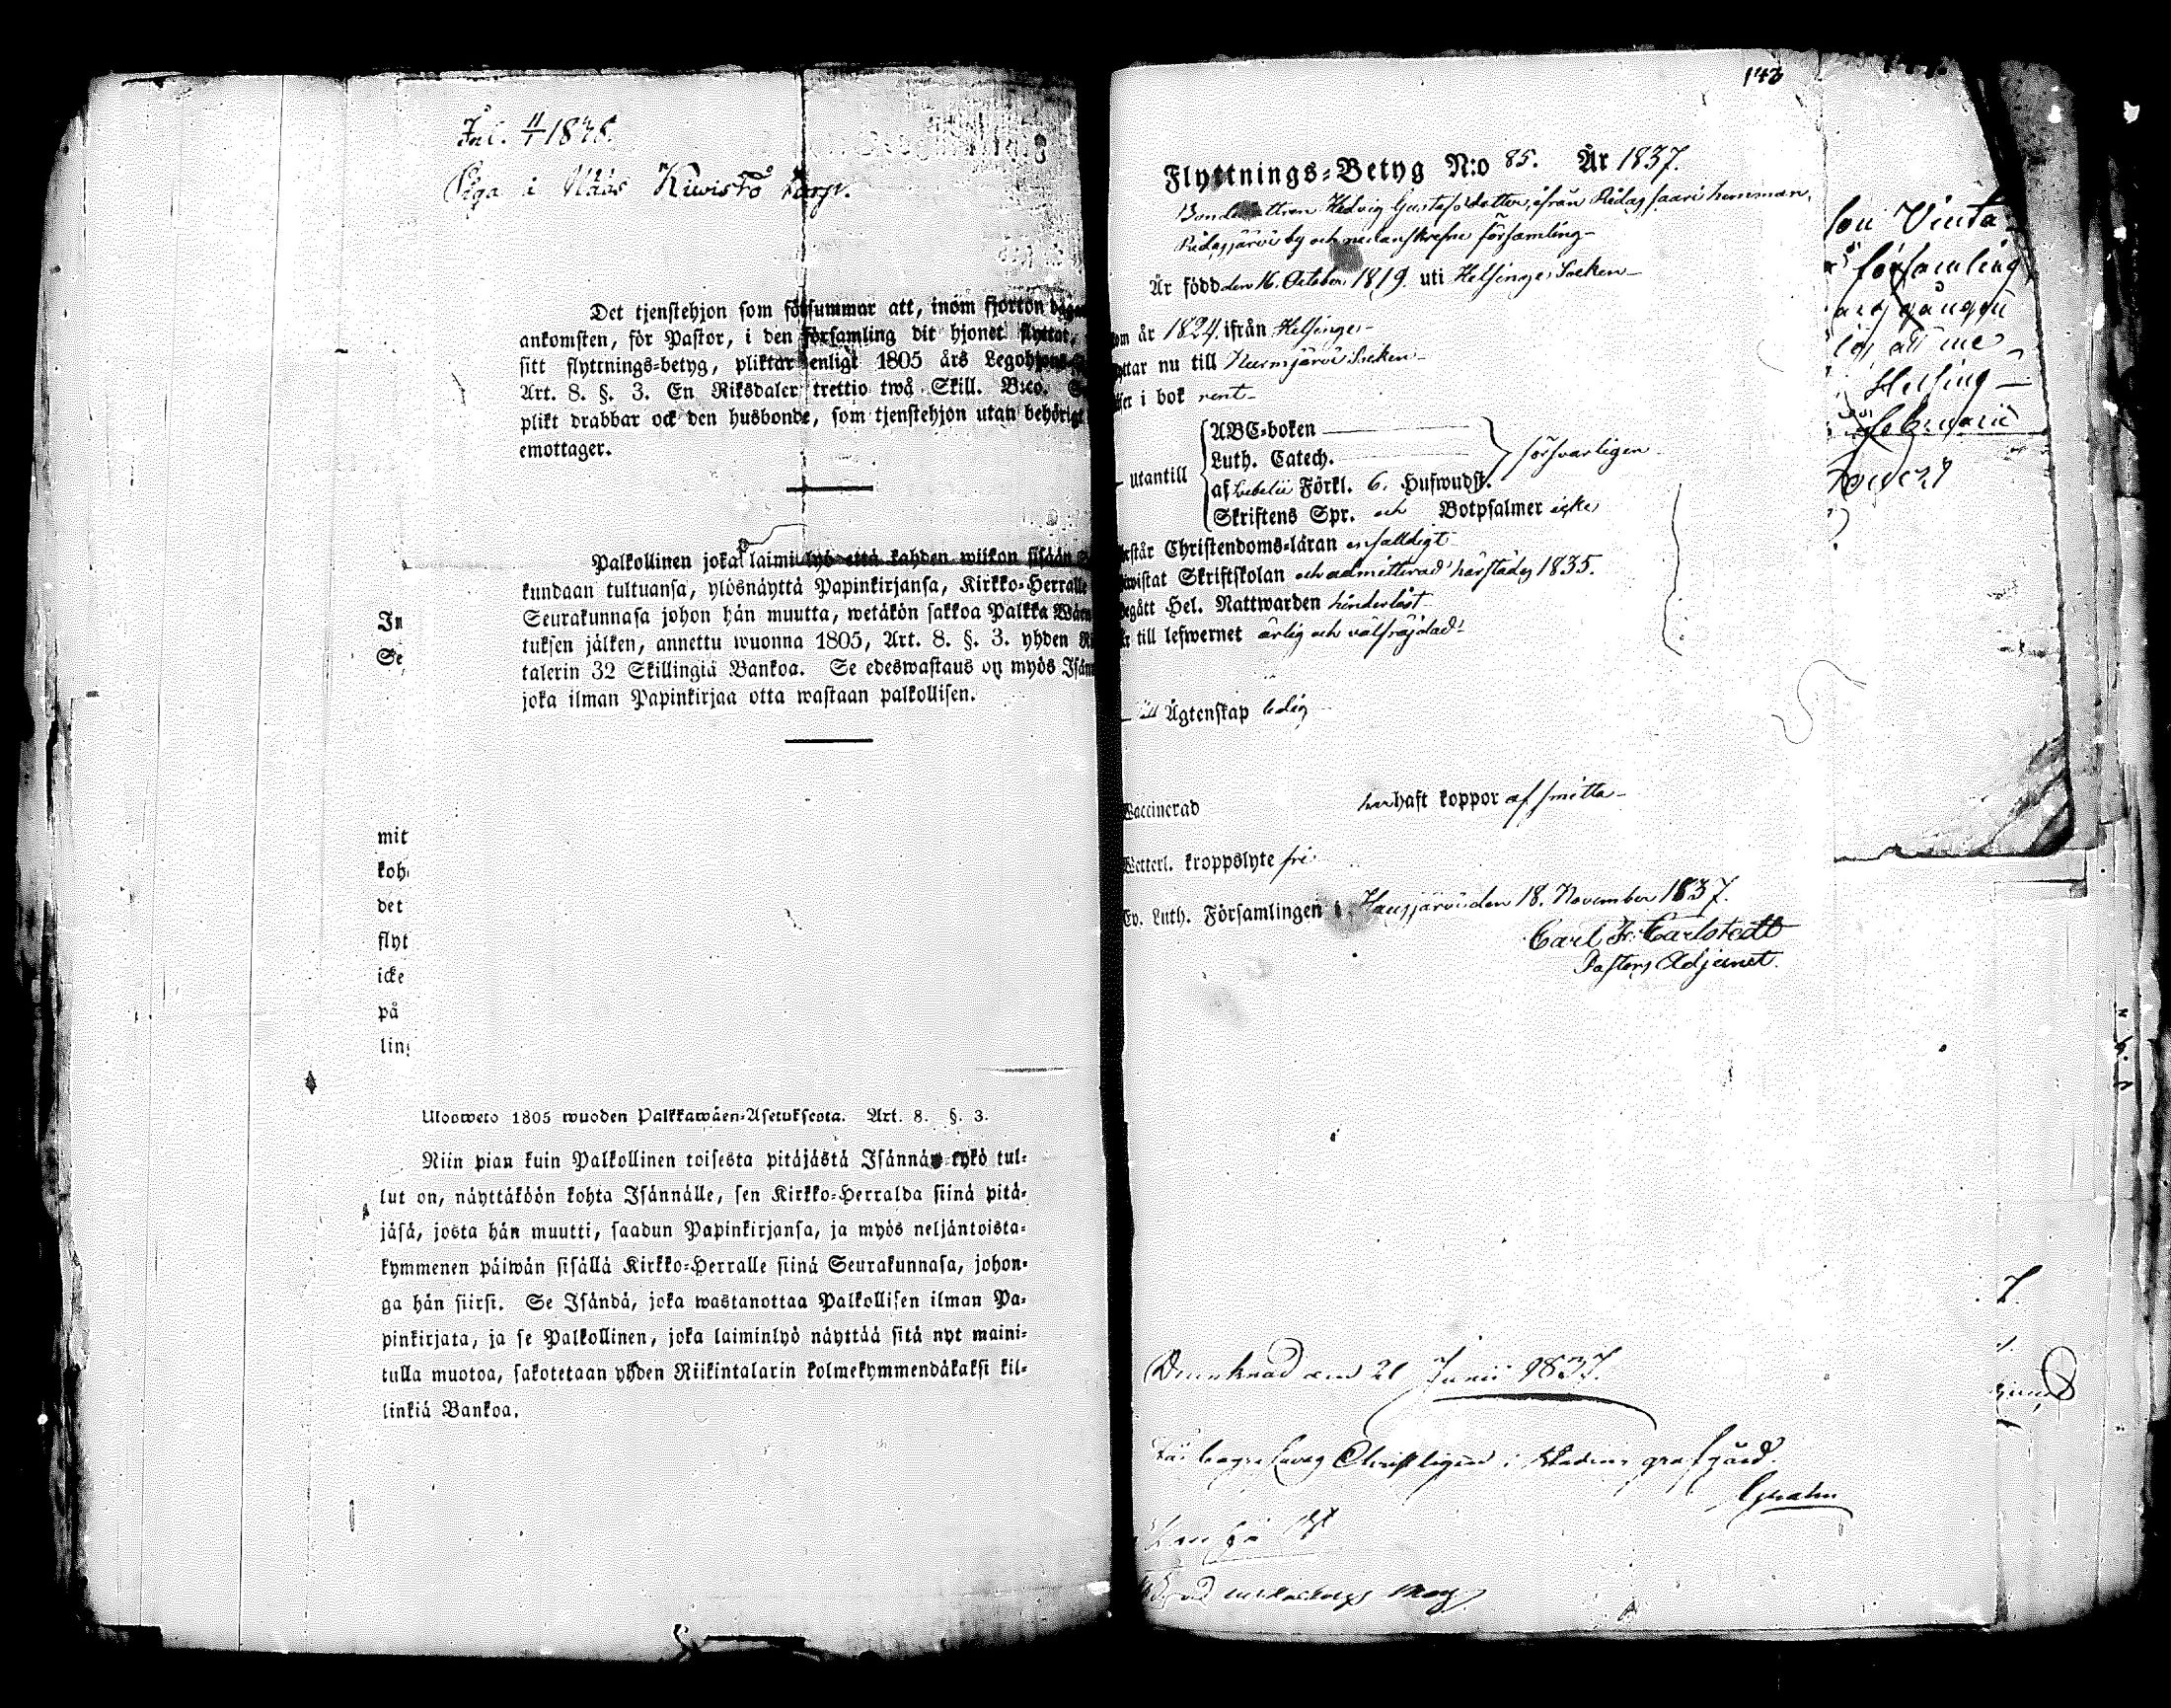 Inl. 11/1 1838.
Piga i Nääs Kiwistö torp.
Det tjenstehjon som försummar att, inom fjorton dagar
ankomsten, för Pastor, i den församling dit hjonet flyttat,
sitt flyttnings-betyg, pliktar enligt 1805 års Legohjons
Art. 8. §. 3. En Riksdaler trettio twå Skill. B:co.
plikt drabbar ock den husbonde, som tjenstehjon utan behörigt
emottager.
Palkollinen joka laiminlyö että kahden wiikon sisään
kundaan tultuansa, ylösnäyttä Papinkirjansa, Kirkko-Herralle
Seurakunnasa johon hän muutta, wetäkön sakkoa Palkka Wäen
tuksen jälken, annettu wuonna 1805, Art. 8. §. 3. yhden
talerin 32 Skillingiä Bankoa. Se edeswastaus on myös
joka ilman Papinkirjaa otta wastaan palkollisen.
In
Se
mit
koh
det
flyt
icke
på
ling
Ulosweto 1805 wuoden Palkkawäen-Asetuksesta. Art. 8. §. 3.
Niin pian kuin Palkollinen toisesta pitäjästä Isännän tykö tul-
lut on, näyttäköön kohta Isännälle, sen Kirkko-Herralda siinä pitä-
jäsä, josta hän muutti, saadun Papinkirjansa, ja myös neljäntoista-
kymmenen päiwän sisällä Kirkko-Herralle siinä Seurakunnasa, johon-
ga hän siirsi. Se Isändä, joka wastanottaa Palkollisen ilman Pa-
pinkirjata, ja se Palkollinen, joka laiminlyö näyttää sitä nyt maini-
tulla muotoa, sakotetaan yhden Riikintalarin kolmekymmendäkaksi kil-
linkiä Bankoa.
143
Flyttnings-Betyg N:o 85. År 1837.
Bondedottren Hedvig Gustafsdotter, ifrån Ridassaari hemman,
Ridasjärvi by och nedanskrefne församling
Är född den 16. October 1819. uti Helsinge Socken
om år 1824. ifrån Helsinge
yttar nu till Nurmjärvi Socken
i bok rent
utantill
ABC-boken
Luth. Catech.
af Sebelii Förkl. 6. Hufwudst.
försvarligen
Skriftens Spr. och Botpsalmer icke
rstår Christendoms-läran enfaldigt
wistat Skriftskolan och admitterad härstädes 1835.
egått Hel. Nattwarden hinderlöst
till lefwernet ärlig och välfräjdad
till Ägtenskap ledig
Waccinerad har haft koppor af smitta
Wetterl. kroppslyte fri
Ev. Luth. Församlingen i Hausjärvi den 18. November 1837.
Carl Fr. Carlstedt
Pastors Adjunct.
son
församling
Helsing
Februarii
Drunknad den 21 Junii 1837.
Christligen i Stadens grafgård.